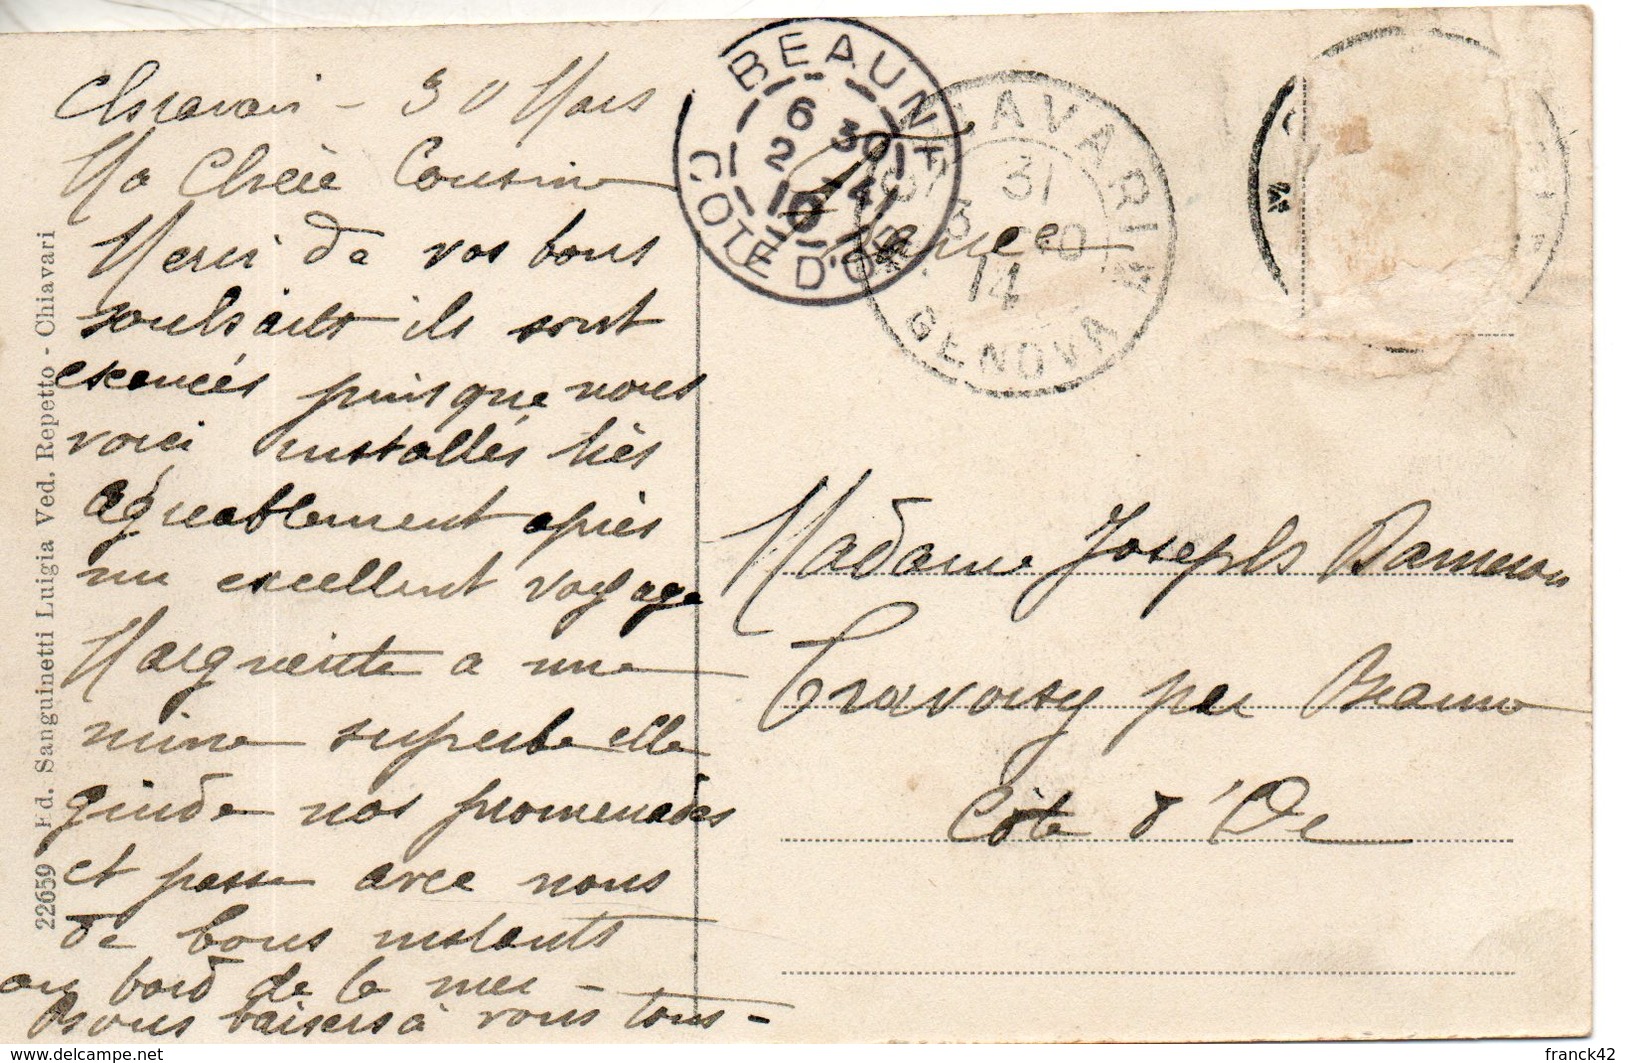 Chiavari - 30 Mars
Ma Chère Cousine
Merci de vos bons
souhaits ils sont
exaucés puisque nous
voici installés très
agréablement après
un excellent voyage
Marguerite a une
mine superbe elle
guide nos promenades
et passe avec nous
de bons instants
au bord de la mer -
Bons baisers à vous tous -
22659 Ed. Sanguinetti Luigia Ved. Repetto - Chiavari
BEAUNE
6 30
2 4
COTE D'OR
CHIAVARI
31
3
14
GENOVA
France
Madame Joseph Dameron
Travoisy par Beaune
Côte d'Or
delcampe.net
franck42